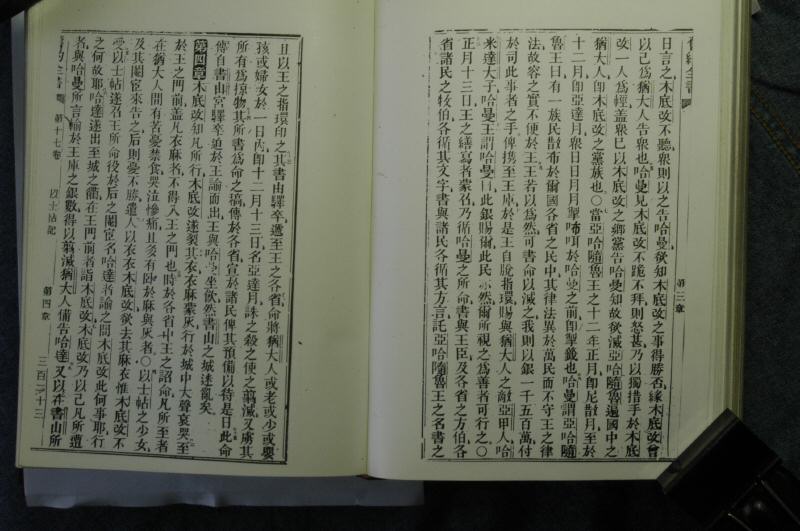 舊約全書
第三章
日言之木底改不聽衆則以之告哈曼欲知木底改之事得勝否緣木底改曾
以己爲猶大人告衆也哈曼見木底改不跪不拜則怒甚乃以獨措手於木底
改一人爲輕蓋衆已以木底改之鄉黨告哈曼知故欲滅亞哈隨魯遍國中之
猶大人卽木底改之黨族也○當亞哈隨魯王之十二年正月卽尼散月至於
十二月卽亞達月衆日日月月掣布珥於哈曼之前卽掣籤也哈曼謂亞哈隨
魯王曰有一族民散布於爾國各省之民中其律法異於萬民而不守王之律
法故容之實不便於王王若以爲然可書命以滅之我則以銀一千五百萬付
於司此事者之手俾携至王庫於是王自脫指環賜與猶大人之敵亞甲人哈
米達大子哈曼王謂哈曼曰此銀賜爾此民亦然爾所視之爲善者可行之○
正月十三日王之繕寫者蒙召乃循哈曼之所命書與王臣及各省之方伯各
省諸民之牧伯各循其文字書與諸民各循其方言託亞哈隨魯王之名書之
且以王之指環印之其書由驛卒遞至王之各省命將猶大人或老或少或嬰
孩或婦女於一日內卽十二月十三日名亞達月誅之殺之使之翦滅又虜其
所有爲掠物其所書爲命之稿傳於各省宣於諸民俾其預備以待是日此命
傳自書山宮驛卒迫於王諭而出王與哈曼坐飲然書山之城迷亂矣
第四章木底改知凡所行木底改遂裂其衣衣麻蒙灰行於城中大聲哀哭至
於王之門前蓋凡衣麻者不得入王之門也時於各省中王之詔命凡所至者
在猶大人間有苦憂禁食哭泣慘痛且多有臥於麻與灰者○以士帖之少女
及其閹宦來告之后則憂不勝遣人以衣衣木底改欲去其麻衣惟木底改不
受以士帖遂召王所命侍於后之閹宦名哈達者諭之問木底改此何事耶行
之何故耶哈達遂出至城之衢在王門前者詣木底改木底改乃以己凡所遭
者與哈曼所言輸於王庫之銀數得以翦滅猶大人備告哈達又以在書山所
舊約全書
第十七卷
以士帖記
第四章
三百二十三